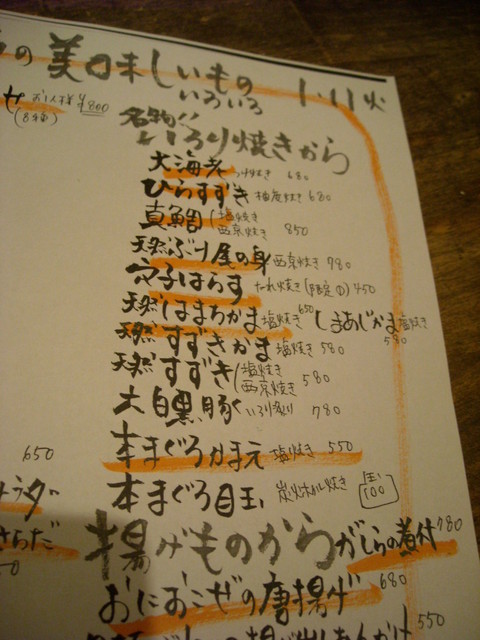 の美味しいもの
いろいろ
1.11 火
せ お1人様 ¥800
名物!!
いろり焼きから
大海老 焼き 680
ひらすずき 柚庵焼き 680
真鯛 塩焼き 西京焼き 850
天然ぶり尾の身 西京焼き 780
穴子はらす たれ焼き (限定①) 450
天然はまちかま 塩焼き 650 しまあじかま 塩焼き 580
天然すずきかま 塩焼き 580
天然すずき 塩焼き 西京焼き 580
いろり炙り 780
本まぐろかま元 塩焼き 550
本まぐろ目玉 炭火ホイル焼き
650
揚げものから
がしらの煮付 780
さらだ
おにおこぜの唐揚げ 680
550